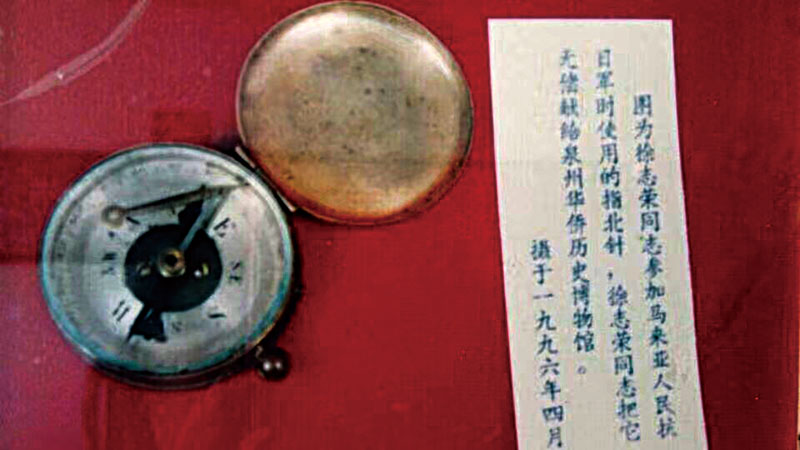 图为徐志荣同志参加马来亚人民抗
日军时使用的指北针，徐志荣同志把它
无偿献给泉州华侨历史博物馆。
摄于一九九六年四月